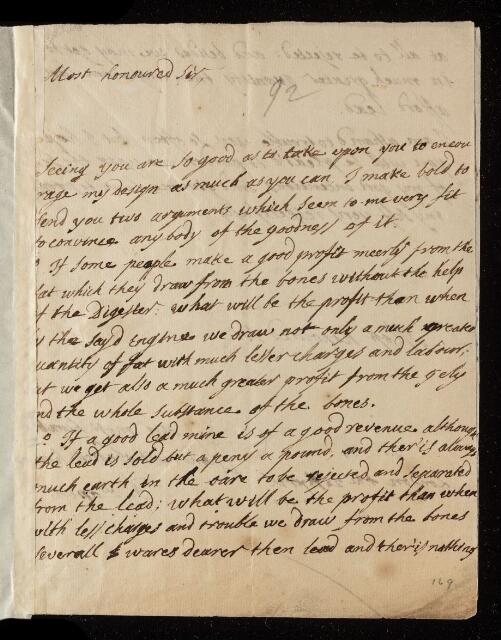 Most honoured Sir
92
Seeing you are so good as to take upon you to encou
rage my design as much as you can I make bold to
send you two arguments which seem to me very fit
to convince any body of the goodness of it.
If some people make a good profit meerly from the
fat which they draw from the bones without the help
of the Digester: what will be the profit than when
by the sayd Engine we draw not only a much greater
quantity of fat with much lesser charges and labour;
but we get also a much greater profit from the gely
and the whole substance of the bones.
If a good lead mine is of a good revenue although
the lead is sold but a peny a pound, and ther is allways
much earth in the oare to be rejected and separated
from the lead; what will be the profit than when
with less charges and trouble we draw from the bones
severall wares dearer then lead and ther is nothing
169